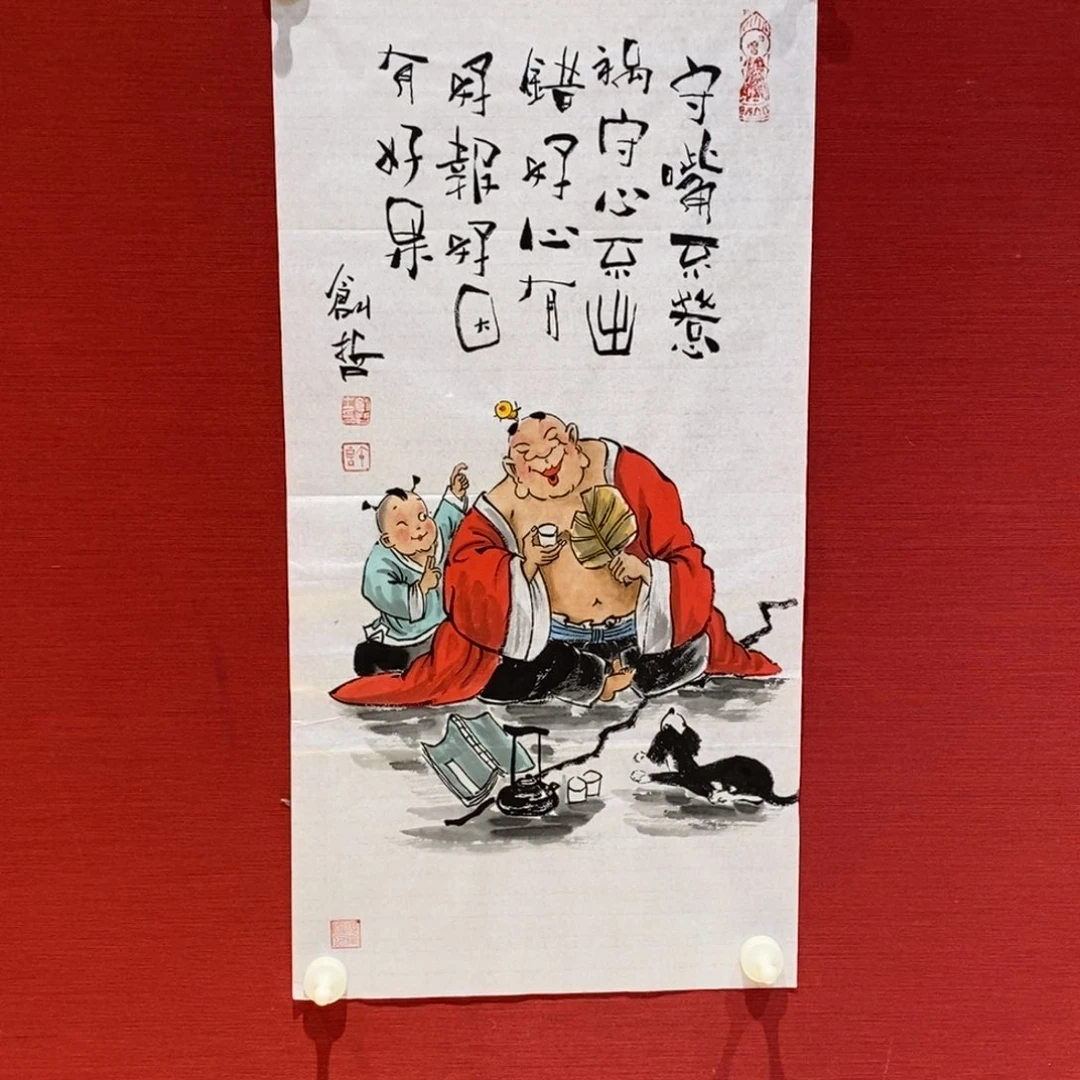 守嘴不惹
祸守心不出
錯好心有
好報好因
有好果
創哲